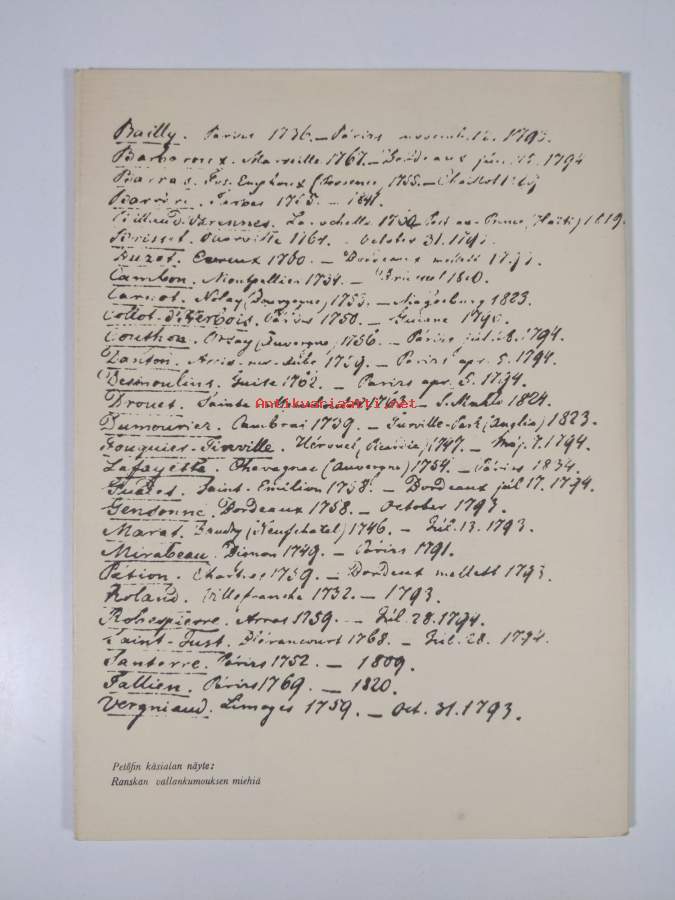 Bailly. 1736. – Páris 1793.
Barbaroux. Marseille 1767. – Bordeaux 1794
Barras. Fos. Emphoux (Provence) 1755. –
Barrère. Tarbes 1755. – 1841.
Billaud-Varennes. La rochelle – 1819.
Brissot. Ouarville – October 31. 1793.
Buzot. Evreux 1760. – Bordeaux mellett 1793.
Cambon. Montpellier 1754. – Brüssel 1820.
Carnot. Nolay (Bourgogne) 1753. – Magdeburg 1823.
Collot-d'Herbois. Páris 1750. – 1796.
Couthon. Orsay (Auvergne) 1756. – Páris júl. 28. 1794.
Danton. Arcis-sur-Aube 1759. – Páris apr. 5. 1794.
Desmoulins. Guise 1762. – Páris apr. 5. 1794.
Drouet. Sainte 1763. – 1824.
Dumouriez. Cambrai 1739. – Turville-Park (Anglia) 1823.
Fouquier-Tinville. Hérouel (Picardia) 1747. – Máj. 7. 1794.
Lafayette. Chavagnac (Auvergne) 1754. – Páris 1834.
Guadet. Saint-Emilion 1758. – Bordeaux júl 17. 1794.
Gensonné. Bordeaux 1758. – October 1793.
Marat. Baudry (Neufchatel) 1746. – Júl. 13. 1793.
Mirabeau. 1749. – Páris 1791.
Pétion. Chartres 1759. – Bordeaux mellett 1793.
Roland. Villefranche 1732. – 1793.
Robespierre. Arras 1759. – Júl. 28. 1794.
Saint-Just. Blérancourt 1768. – Júl. 28. 1794.
Santerre. Páris 1752. – 1809.
Tallien. Páris 1769. – 1820.
Vergniaud. Limoges 1759. – Oct. 31. 1793.
Antikvariaatti.net
Petőfin käsialan näyte:
Ranskan vallankumouksen miehiä